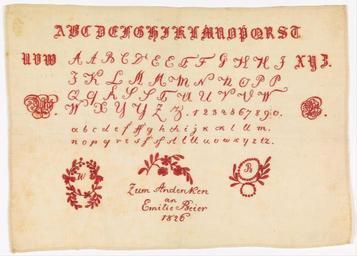 ABCDEFGHIKLMNOPQRST
UVW AABCDEEFFGHHIJ XYZ.
JKLMMNNOPP
QQRSSTUUVVW
WXYYZZ.1234567890.
abcdeffghchijkcklllm.
nopqrstsfstttuuvwxyztz.
W
B
Zum Andenken
an
Emilie Beier
1826